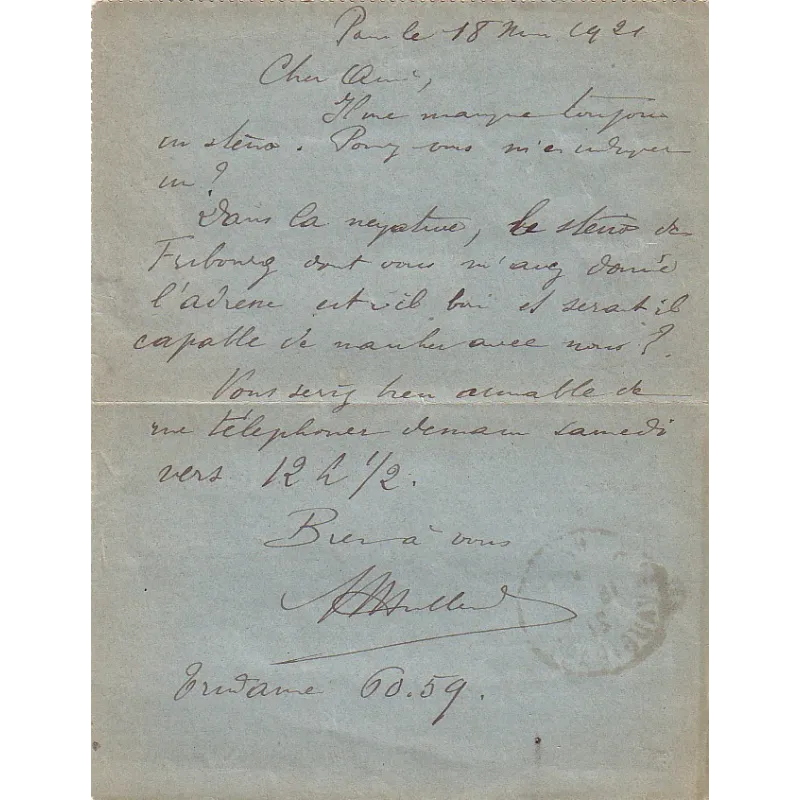 Paris le 18 Nov 1921
Cher Ami,
Il me manque toujours
un sténo. Pouvez vous m'en indiquer
un ?
Dans la negative, le sténo de
Fribourg dont vous m'avez donné
l'adresse est-il bon et serait il
capable de marcher avec nous ?
Vous seriez bien aimable de
me téléphoner demain samedi
vers 12 h 1/2.
Bien à vous
Trudaine 60.59.